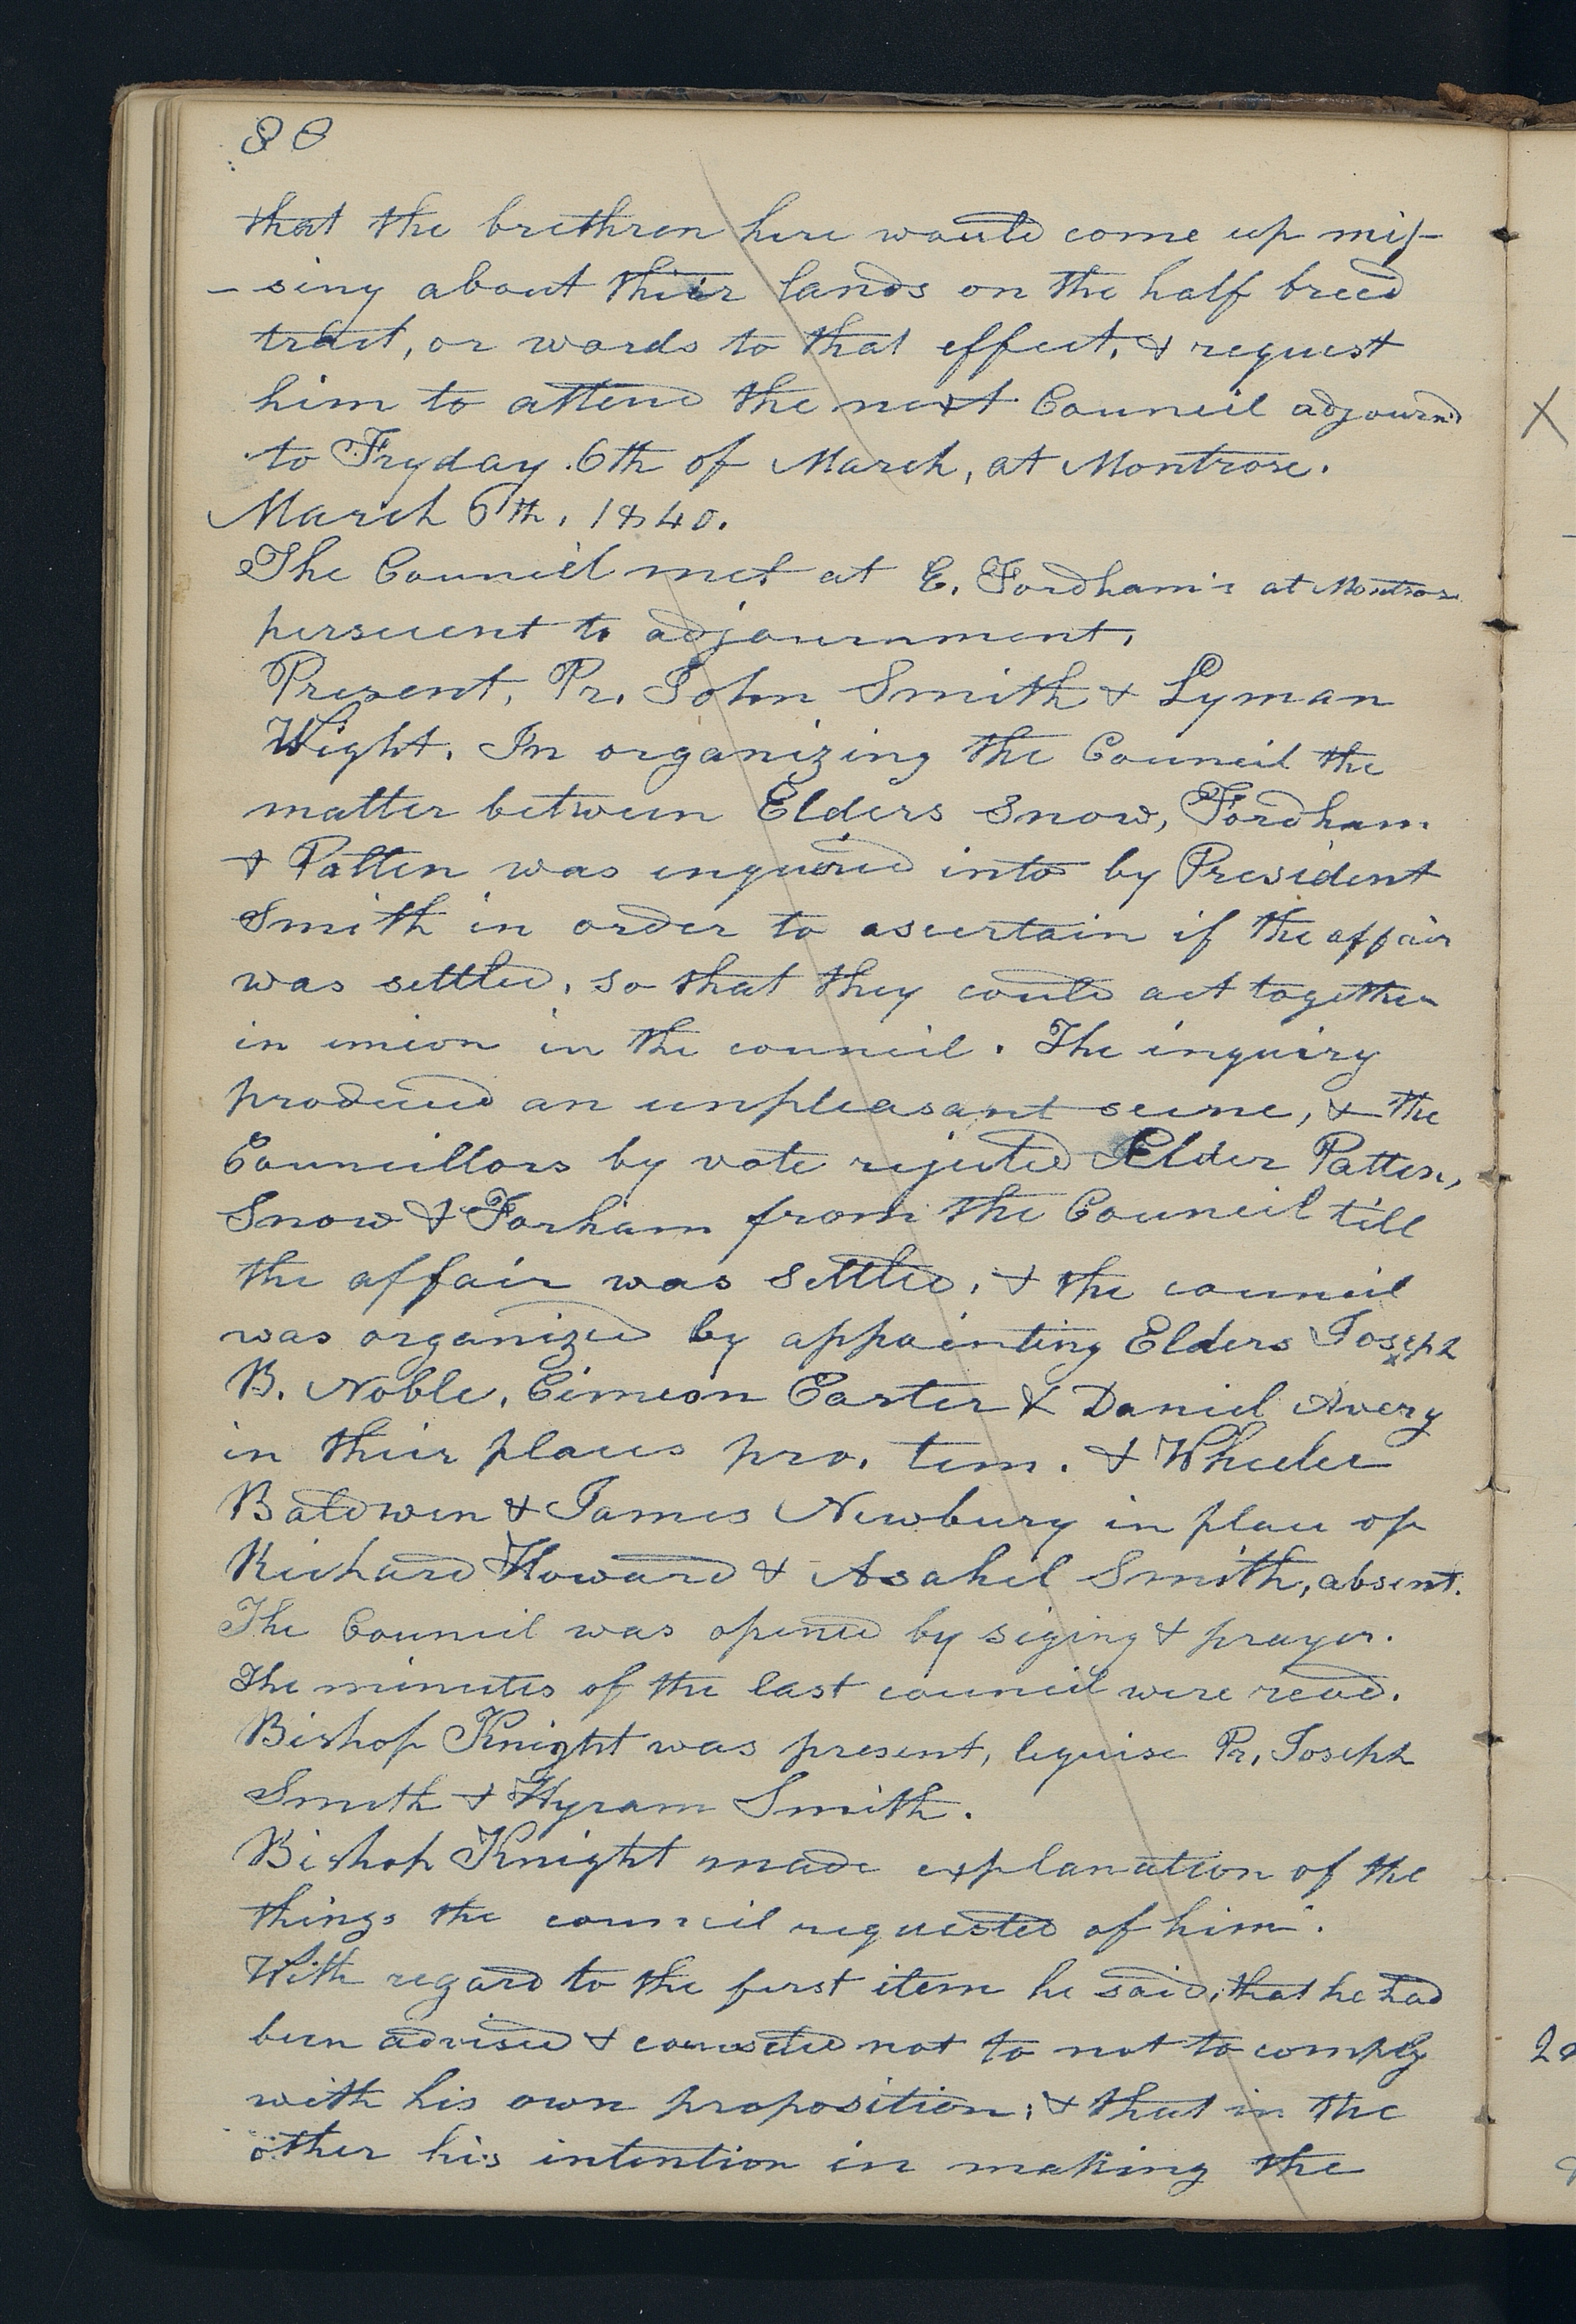 80
that the brethren here would come up mis-
-sing about thier lands on the half breed
tract, or words to that effect, & request
him to attend the next Council adjournd
to Fryday 6th of March, at Montrose.
March 6th, 1840.
The Council met at E. Fordham's at Montrose
persuent to adjournment,
Present, Pr. John Smith & Lyman
Wight. In organizing the Council the
matter between Elders Snow, Fordham
& Patten was enquired into by President
Smith in order to ascertain if the affair
was settled, so that they could act together
in union in the council. The inquiry
produced an unpleasant scene, & the
Councillors by vote rejected Elder Patten,
Snow & Forham from the Council till
the affair was settled, & the council
was organized by appointing Elders Joseph
B. Noble, Cimeon Carter & Daniel Avery
in their places pro. tem. & Wheeler
Baldwin & James Newbury in place of
Richard Howard & Asahel Smith, absent.
The Council was opened by siging & prayer.
The minutes of the last council were read.
Bishop Knight was present, lequise Pr, Joseph
Smith & Hyram Smith.
Bishop Knight made explanation of the
things the council requested of him.
With regard to the first item he said, that he had
been advised & counseled not to not to comply
with his own proposition; & that in the
other his intention in making the
X